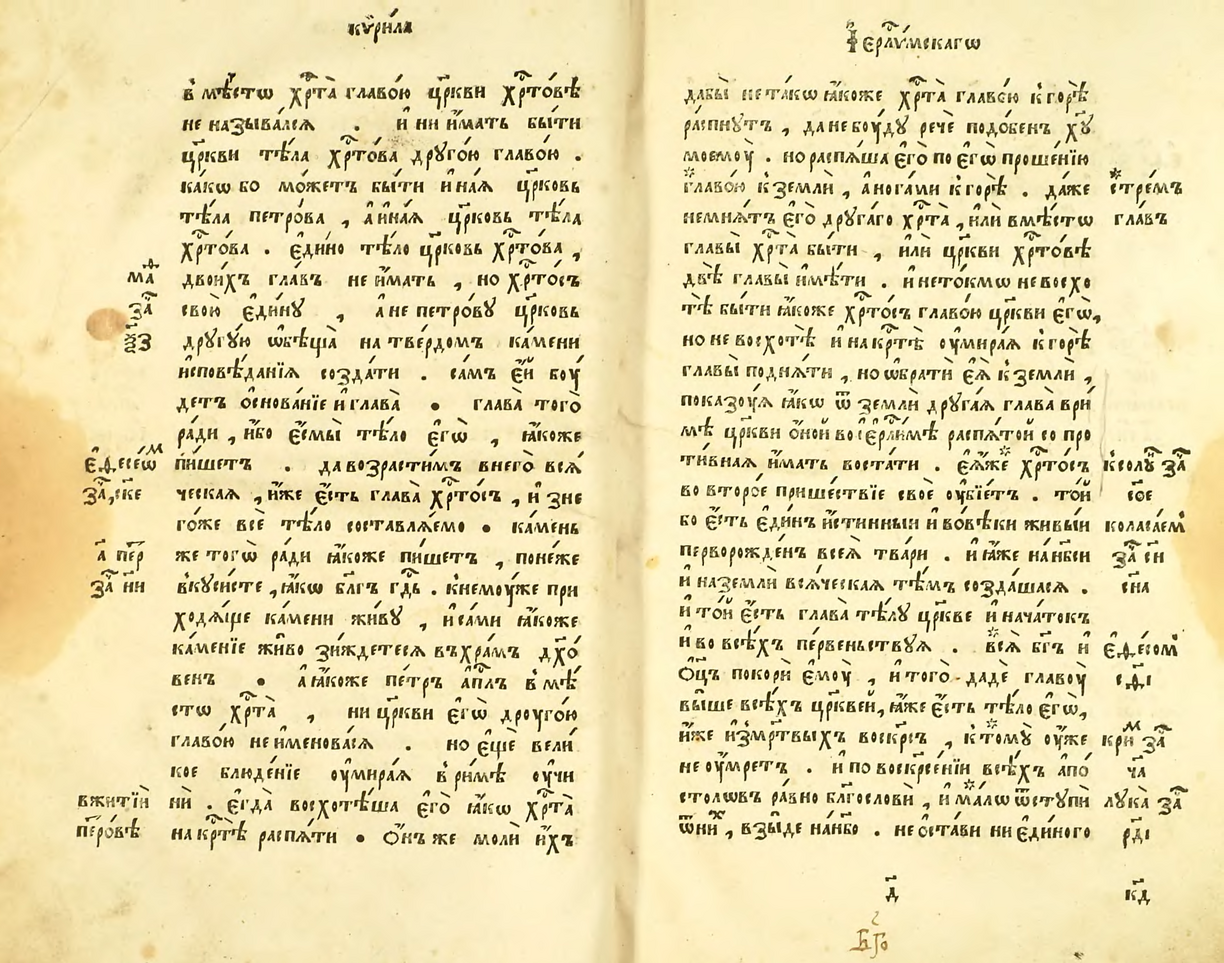 кѵри́ла
в мѣ́стѡ хрⷭ҇та̀ главо́ю цр҃кви хрⷭ҇то́вѣ
не называ́лсѧ . и ни и́мать бы́ти
цр҃кви тѣ́ла хрⷭ҇то́ва друго́ю главо́ю .
ка́кѡ бо мо́жетъ бы́ти и́наѧ цр҃ковь
тѣ́ла петро́ва , а и́наѧ цр҃ковь тѣ́ла
хрⷭ҇то́ва . є҆ди́но тѣ́ло цр҃ковь хрⷭ҇то́ва ,
двои́хъ гла́въ не и́мать , но хрⷭ҇то́съ
свою̀ є҆ди́ну , а не петро́ву цр҃ковь
другу́ю ѡ҆бѣща̀ на тве́рдомъ ка́мени
и҆сповѣ́данїѧ созда́ти . са́мъ є҆́й боу́
детъ ѻ҆снова́нїе и҆ глава̀ • глава̀ того̀
ра́ди , и҆́бо є҆смы̀ тѣ́ло є҆гѡ̀ , ꙗ҆́коже
пи́шетъ . да возрасти́мъ в него̀ всѧ́
ческаѧ , и҆́же є҆́сть глава̀ хрⷭ҇то́съ , и҆ з не
го́же всѐ тѣ́ло составлѧ́емо • ка́мень
же тогѡ̀ ра́ди ꙗ҆́коже пи́шетъ , поне́же
вкуси́сте , ꙗ҆́кѡ бл҃гъ гдⷭ҇ь . к нему́же при
ходѧ́ще ка́мени жи́ву , и҆ са́ми ꙗ҆́коже
ка́менїе жи́во зи́ждетесѧ въ хра́мъ дх҃о́
венъ • а ꙗ҆́коже пе́тръ а҆пⷭ҇лъ в мѣ́
стѡ хрⷭ҇та̀ , ни цр҃кви є҆гѡ̀ дроуго́ю
главо́ю не и҆менова́сѧ . но є҆щѐ вели́
кое блюде́нїе оу҆мира́ѧ в ри́мѣ оу҆чи
нѝ . є҆гда̀ восхотѣ́ша є҆го̀ ꙗ҆́кѡ хрⷭ҇та̀
на крⷭ҇тѣ̀ распѧ́ти • Ѻ҆́нъ же молѝ и҆́хъ
маⷴ
заⷱ҇
ѯ҃з
є҆фесе́ѡⷨ
заⷱ҇ , ске
а҃ пеⷬ҇
заⷱ҇ ни
в житїѝ
пеⷬ҇о́вѣ
І҆ерⷭ҇ли́мскагѡ
дабы̀ не та́кѡ ꙗ҆́коже хрⷭ҇та̀ главо́ю к горѣ̀
ра́спнутъ , да не боу́ду речѐ подо́бенъ хⷭ҇у
моемоу̀ . но распѧ́ша є҆го̀ по є҆гѡ̀ проше́нїю
главо́ю к землѝ , а нога́ми к горѣ̀ . да́же
не мнѧ́тъ є҆го̀ друга́го хрⷭ҇та̀ , и҆лѝ вмѣ́стѡ
главы̀ хрⷭ҇та̀ бы́ти , и҆лѝ цр҃кви хрⷭ҇то́вѣ
двѣ̀ главы̀ и҆мѣ́ти . и҆ не то́кмѡ не восхо
тѣ̀ бы́ти ꙗ҆́коже хрⷭ҇то́съ главо́ю цр҃кви є҆гѡ̀,
но не восхотѣ̀ и҆ на крⷭ҇тѣ̀ оу҆мира́ѧ к горѣ̀
главы̀ поднѧ́ти , но ѡ҆братѝ є҆ѧ̀ к землѝ ,
показоу́ѧ ꙗ҆́кѡ ѿ землѝ друга́ѧ глава̀ в ри́
мѣ цр҃кви ѻ҆́ной во і҆ерⷭ҇ли́мѣ распѧ́той со про
ти́внаѧ и҆́мать воста́ти . є҆ѧ́же хрⷭ҇то́съ
во второ́е прише́ствїе своѐ оу҆бїе́тъ . то́й
бо є҆́сть є҆ди́нъ и҆́стинныи и҆ во вѣ́ки живы́и
перворожде́нъ всеѧ̀ тва́ри . и҆ ꙗ҆́же на нб҃си
и҆ на землѝ всѧ́ческаѧ тѣ́мъ созда́шасѧ .
и҆ то́й є҆́сть глава̀ тѣ́лу цр҃кве и҆ нача́токъ
и҆ во всѣ́хъ пе́рвеньствуѧ . всѧ̀ бг҃ъ и҆
Ѻ҆ц҃ъ покорѝ є҆моу̀ , и҆ того̀ дадѐ главоу̀
вы́ше всѣ́хъ цр҃кве́й, ꙗ҆́же є҆́сть тѣ́ло є҆гѡ̀,
и҆́же и҆з ме́ртвыхъ воскре́съ , к тому̀ оу҆́же
не оу҆́мретъ . и҆ по воскресе́нїи всѣ́хъ а҆по́
столѡвъ ра́вно благословѝ , и҆ ма́лѡ ѿступѝ
ѿ ни́хъ , взы́де на нб҃о . не ѻ҆ста́ви ни є҆ди́ного
стре́мъ
гла́въ
к солу́ заⷱ҇
сое
коласаемⷨ
заⷱ҇ си
сна
є҆фесом
сфі
кри́ⷨ заⷱ҇
ча
лука̀ заⷱ҇
рді
д҃
кд҃